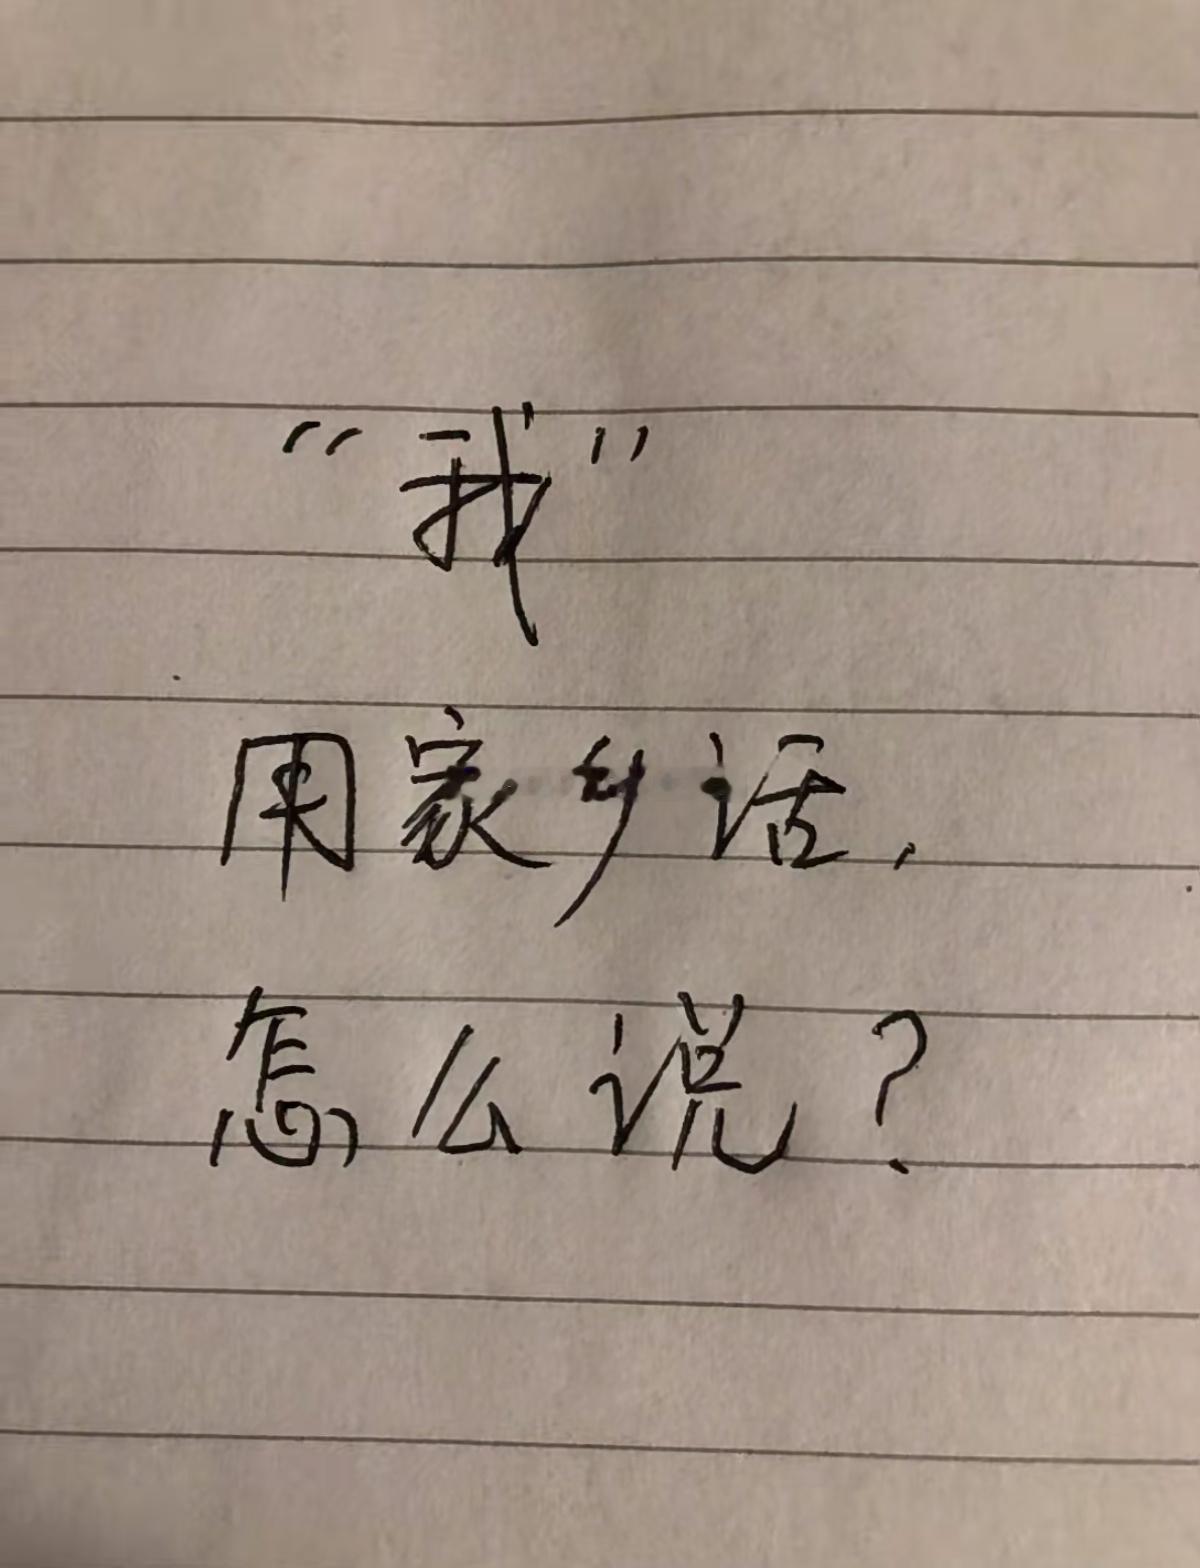 “我”
用家乡话,
怎么说?